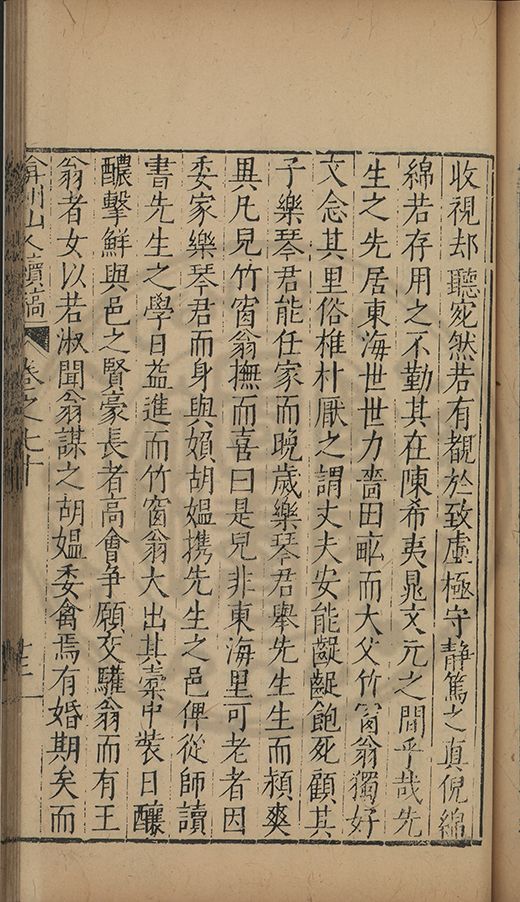 收視却聽宛然若有覩於致虛極守靜篤之真倪綿
綿若存用之不勤其在陳希夷晁文元之間乎哉先
生之先居東海世世力嗇田畝而大父竹窗翁獨好
文念其里俗椎朴厭之謂丈夫安能齪齪飽死顧其
子樂琴君能任家而晩歲樂琴君舉先生生而頴爽
異凡兒竹窗翁撫而喜曰是兒非東海里可老者因
委家樂琴君而身與嬪胡媼携先生之邑俾從師讀
書先生之學日益進而竹窗翁大出其槖中裝日釀
醲擊鮮與邑之賢豪長者高會爭願交驩翁而有王
翁者女以若淑聞翁謀之胡媼委禽焉有婚期矣而
弇州山人續稿 卷之七十 十二